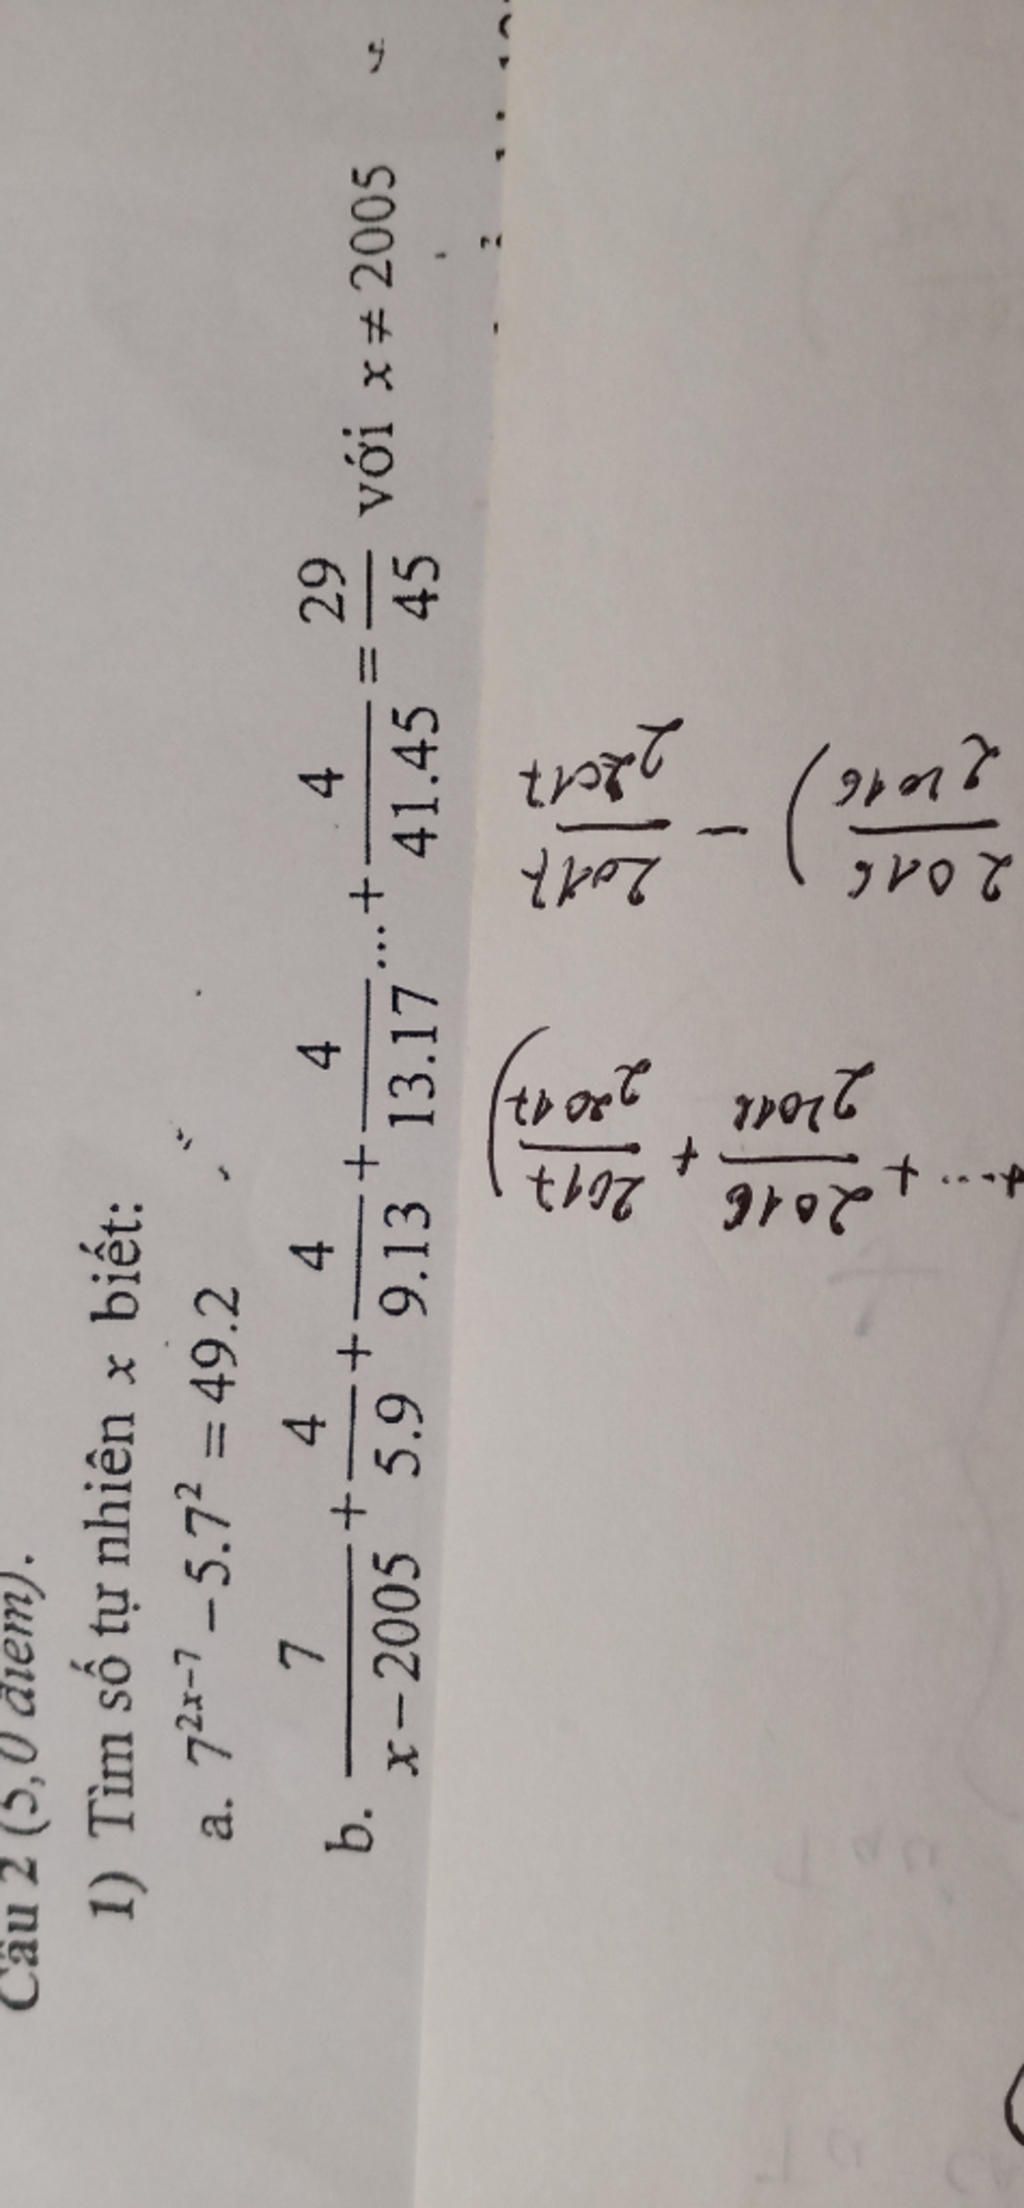 Câu 2 (5,0 điểm).
1) Tìm số tự nhiên x biết:
a. 7^{2x-7} – 5.7^2 = 49.2
b. 7/(x – 2005) + 4/5.9 + 4/9.13 + 4/13.17 ... + 4/41.45 = 29/45 với x ≠ 2005
+ ... + 2016/2^{2016} + 2017/2^{2017})
2016/2^{2016}) – 2017/2^{2017}